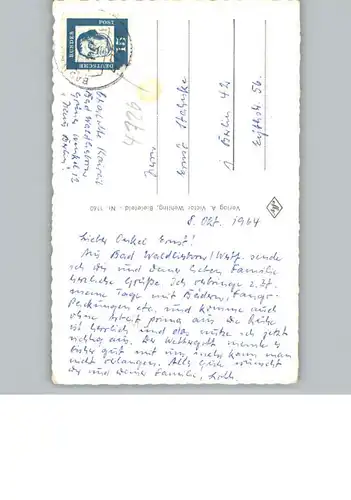 DEUTSCHE
BUNDESPOST
15
Bad Waldliesborn
(Prov. Berlin)
47261
Herrn
Ernst
1 Berlin 42
56.
Verlag A. Victor Wehling, Bielefeld - Nr. 1760
8. Okt. 1964
Lieber Onkel Ernst!
Aus Bad Waldliesborn/Westf. sende
ich Dir und Deiner lieben Familie
herzliche Grüße. Ich verbringe z. Zt.
meine Tage mit Bädern, Fango-
Packungen etc, und komme auch
ohne Arbeit prima aus. Die Ruhe
ist herrlich und das nutze ich jetzt
richtig aus. Der Wettergott meinte es
bisher gut mit uns, mehr kann man
nicht verlangen. Alles Gute wünscht
Dir und Deiner Familie,